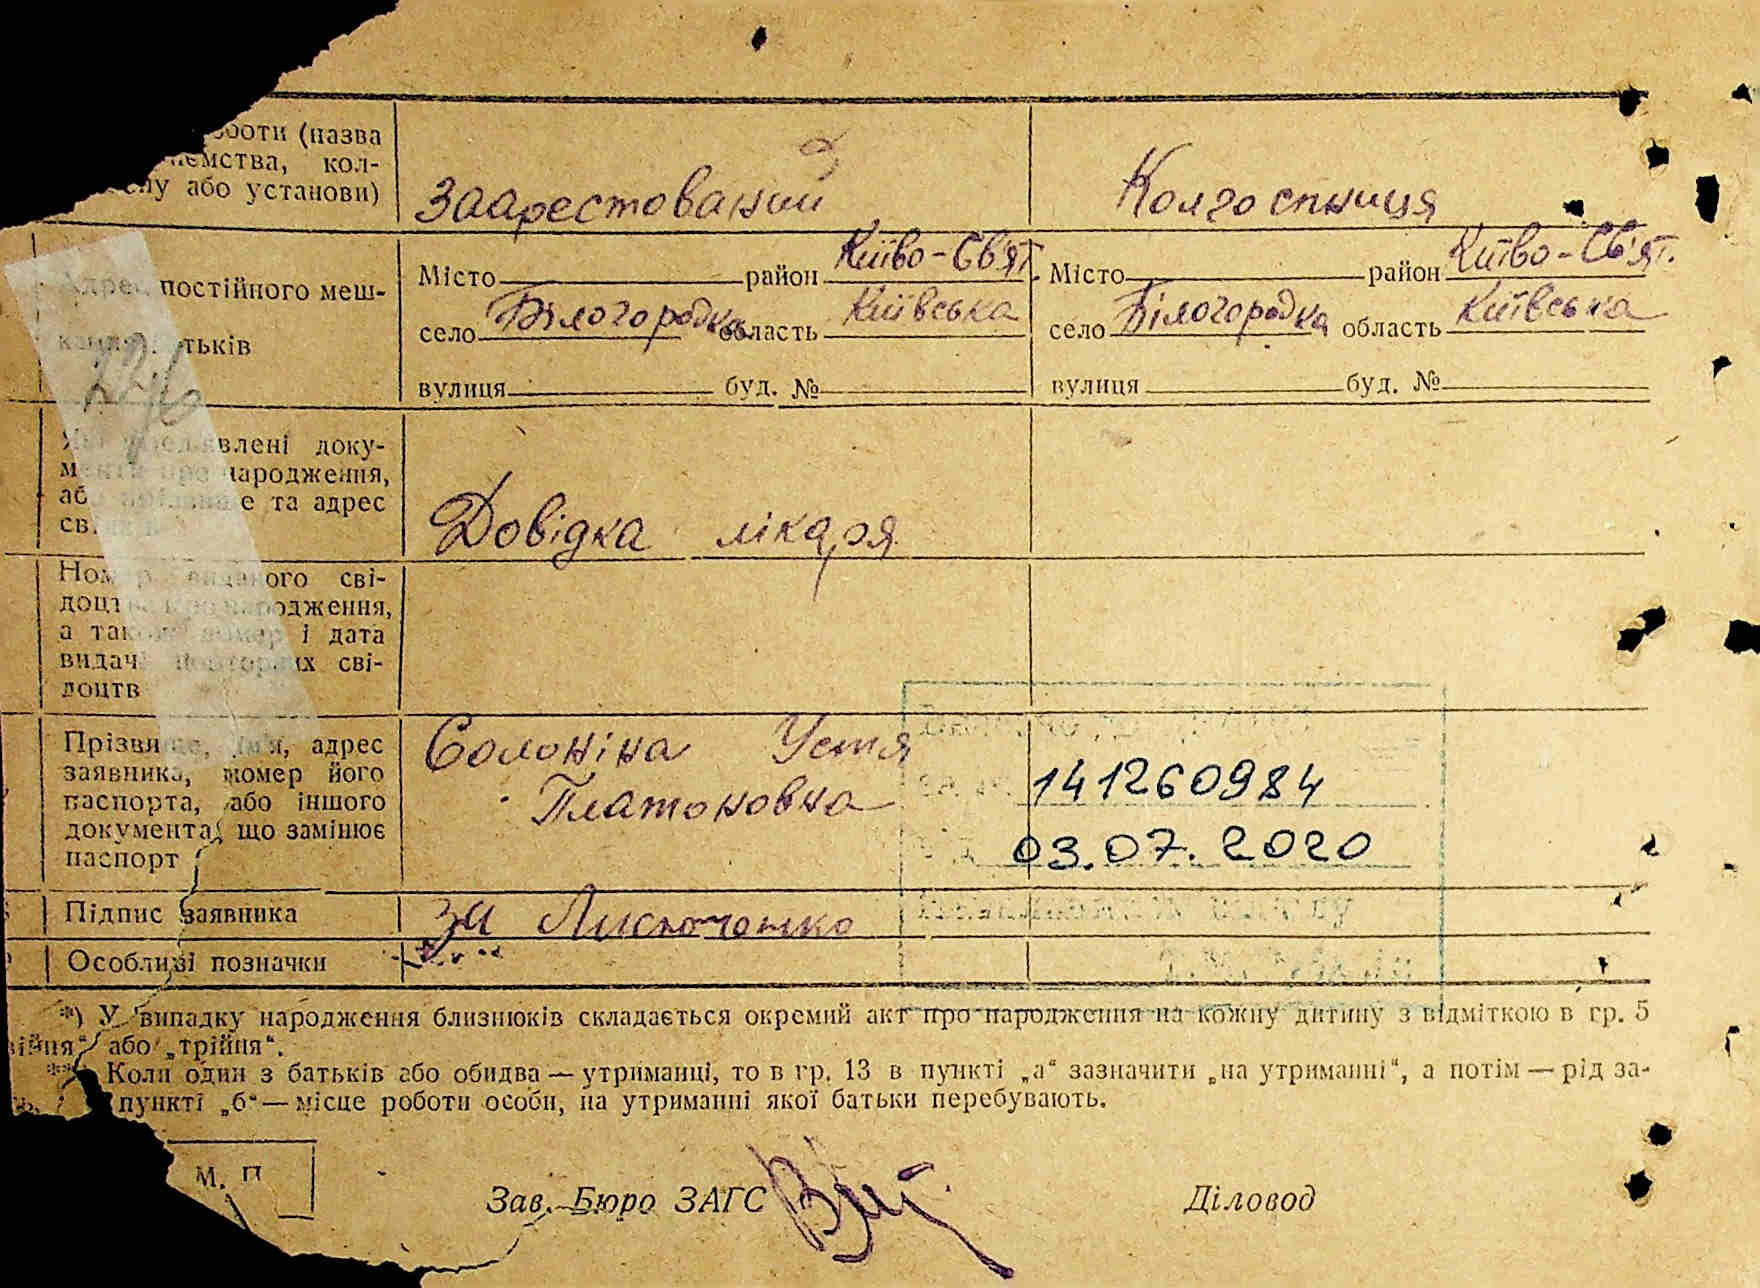 боти (назва
ємства, кол-
пу або установи)
Заарестований
Колгоспниця
Адрес постійного меш-
кання батьків
Місто район Київо-Св'ят.
село Білогородка область Київська
вулиця буд. №
Місто район Київо-Св'ят.
село Білогородка область Київська
вулиця буд. №
Які пред'явлені доку-
менти про народження,
або прізвище та адрес
свідків
Довідка лікаря
Номер виданого сві-
доцтва про народження,
а також номер і дата
видачі повторних сві-
доцтв
Прізвище, ім'я, адрес
заявника, номер його
паспорта, або іншого
документа, що замінює
паспорт
Солоніна Устя
Платоновна
141260984
03.07.2020
Підпис заявника
за
Особливі позначки
*) У випадку народження близнюків складається окремий акт про народження на кожну дитину з відміткою в гр. 5
або „трійня“.
Коли один з батьків або обидва — утриманці, то в гр. 13 в пункті „а“ зазначити „на утриманні“, а потім — рід за-
пункті „б“ — місце роботи особи, на утриманні якої батьки перебувають.
М. П
Зав. Бюро ЗАГС
Діловод